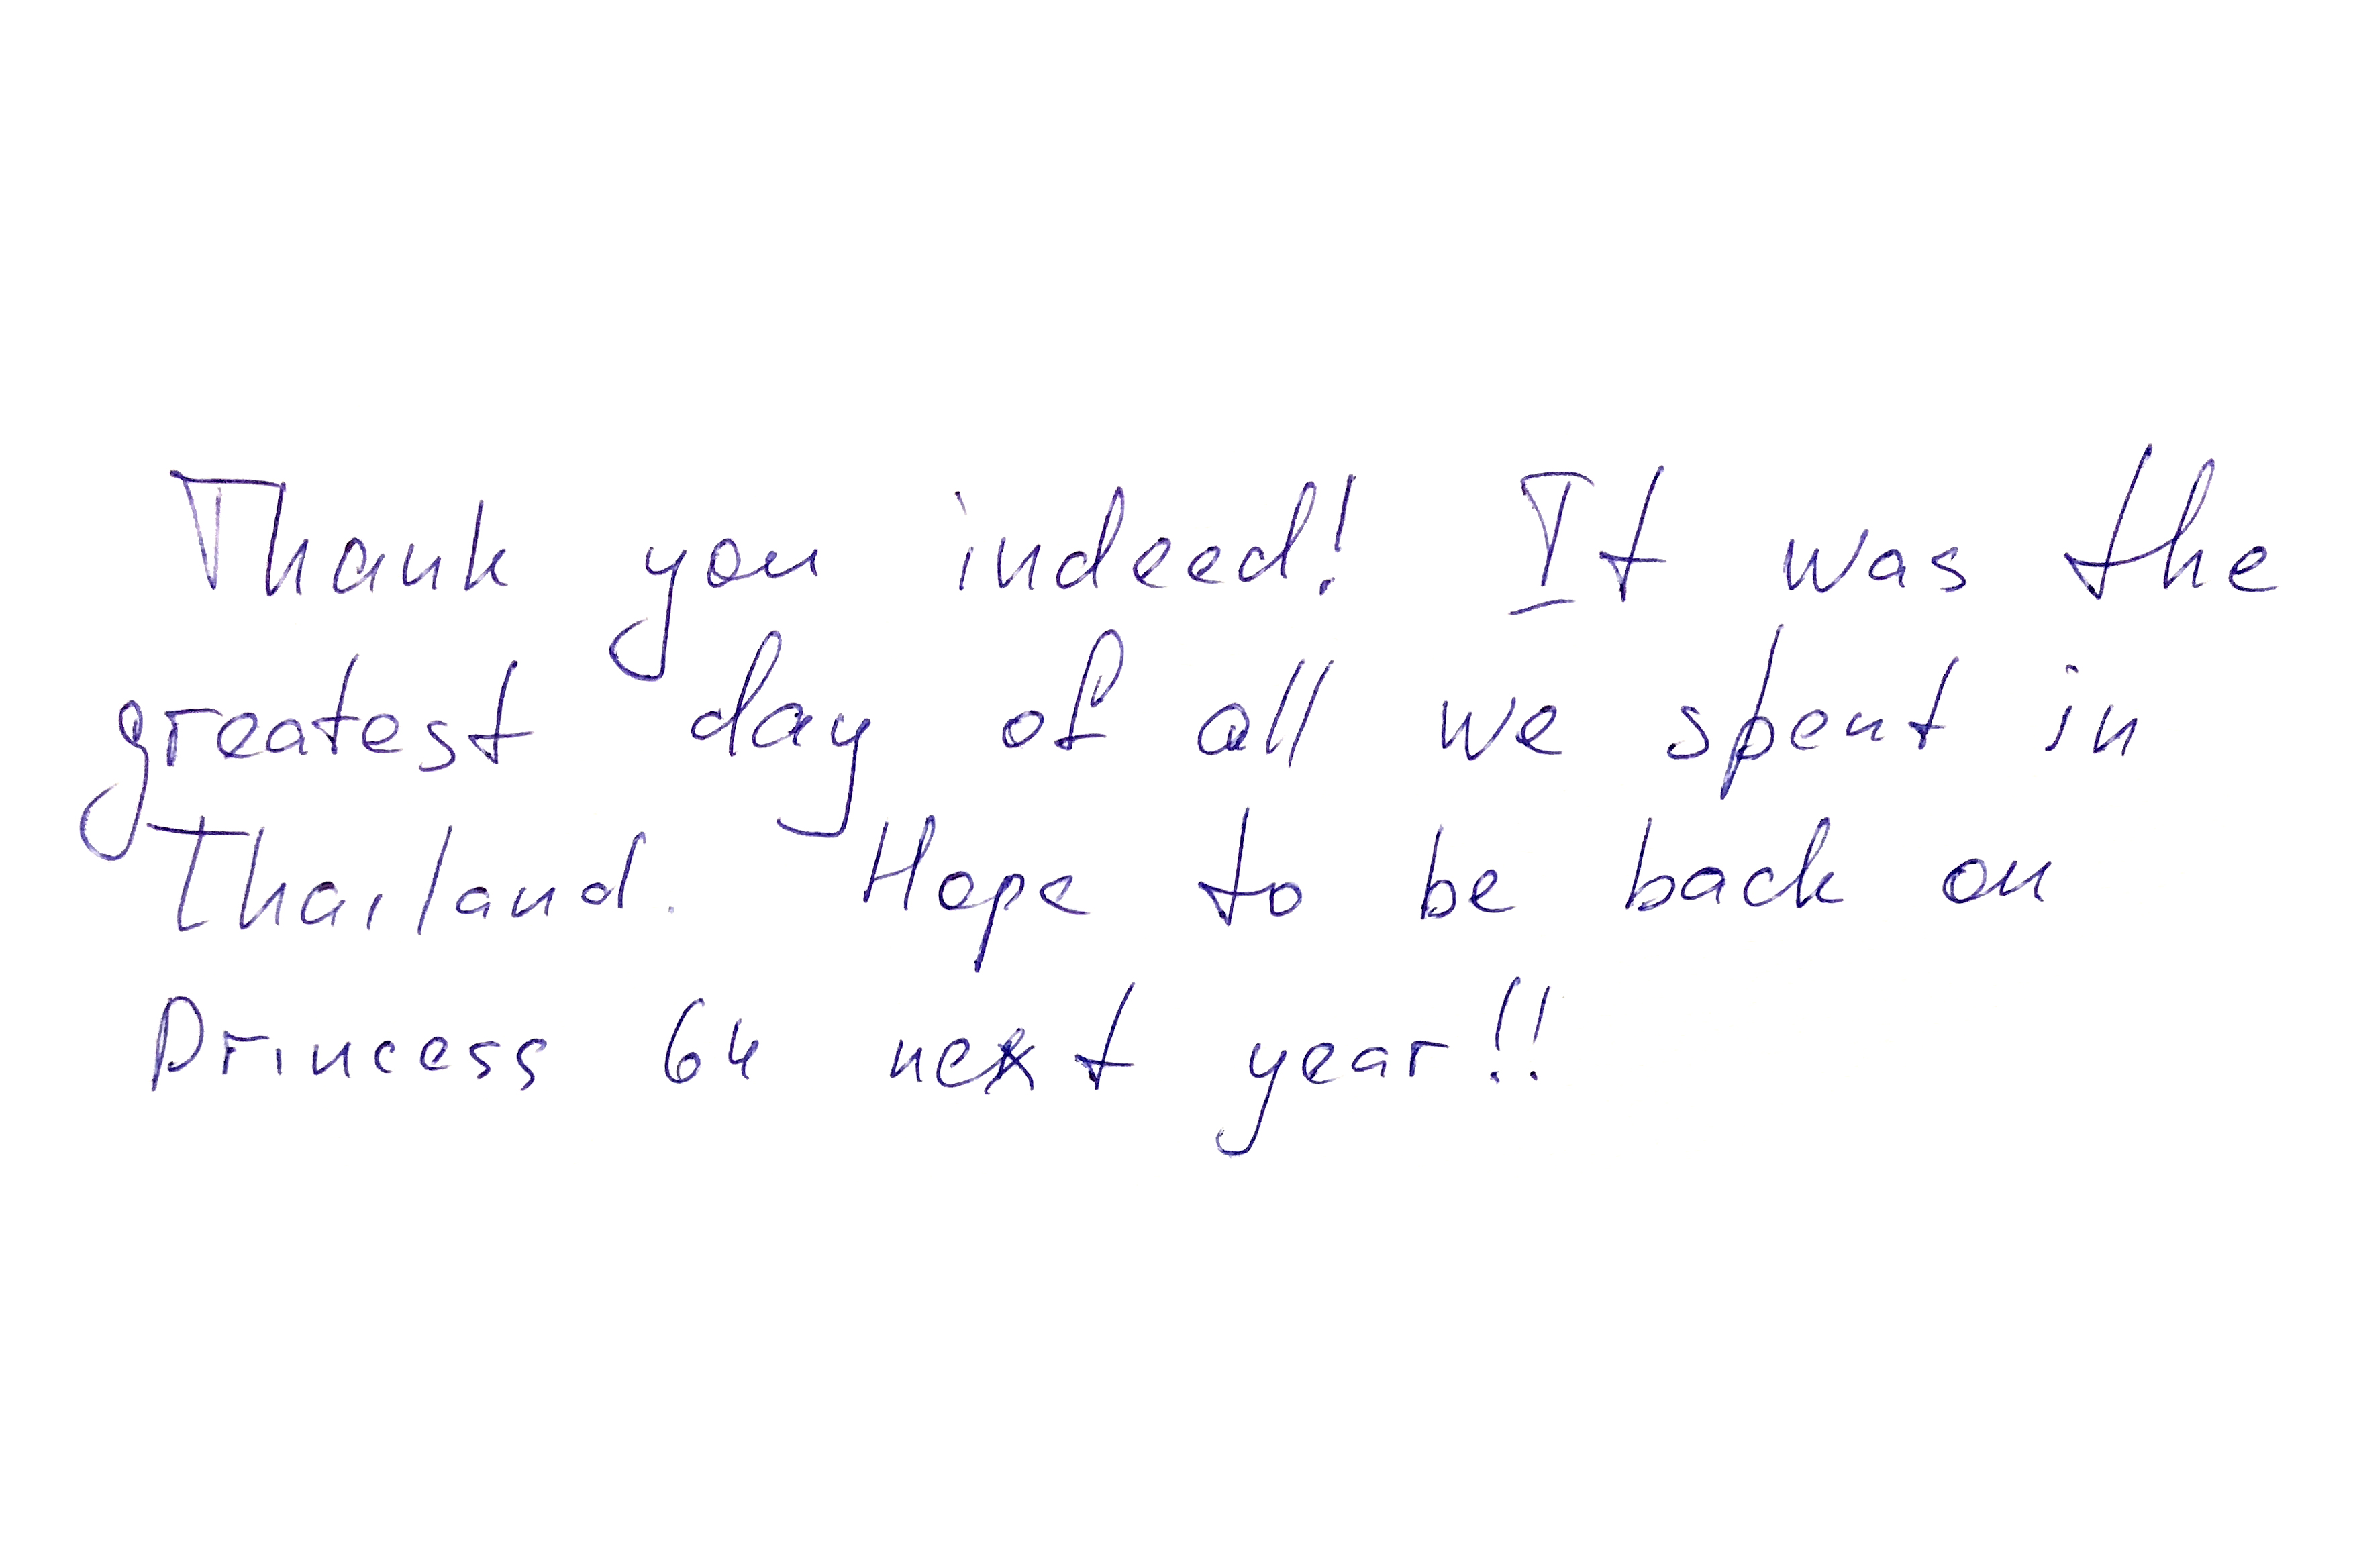 Thank you indeed! It was the
greatest day of all we spent in
Thailand. Hope to be back on
Princess 64 next year!!